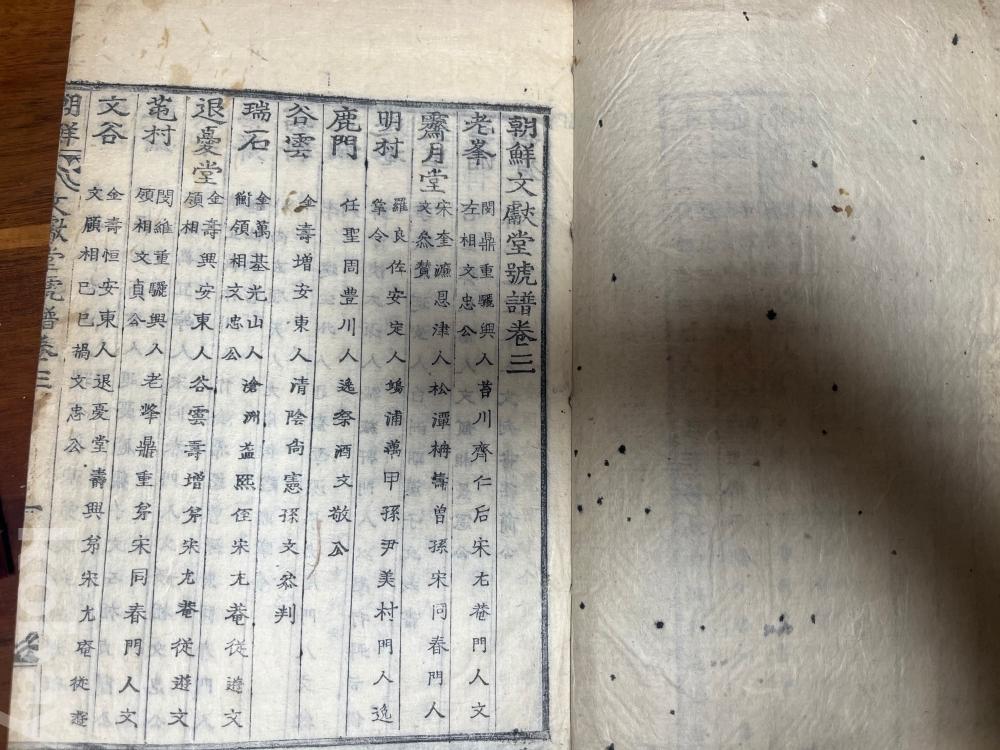 朝鮮文獻堂號譜卷三
老峯 閔鼎重驪興人苔川齊仁后宋尤菴門人文
左相文忠公
霽月堂 宋奎濂恩津人松潭柟壽曾孫宋同春門人
文參贊
明村 羅良佐安定人鷗浦萬甲孫尹美村門人逸
掌令
鹿門 任聖周豊川人逸祭酒文敬公
谷雲 金壽增安東人清陰尙憲孫文參判
瑞石 金萬基光山人滄洲益熙侄宋尤菴從遊文
衡領相文忠公
退憂堂 金壽興安東人谷雲壽增弟宋尤菴從遊文
領相
芚村 閔維重驪興人老峰鼎重弟宋同春門人文
領相文貞公
文谷 金壽恒安東人退憂堂壽興弟宋尤庵從遊
文領相己巳禍文忠公
朝鮮文獻堂號譜卷三 一